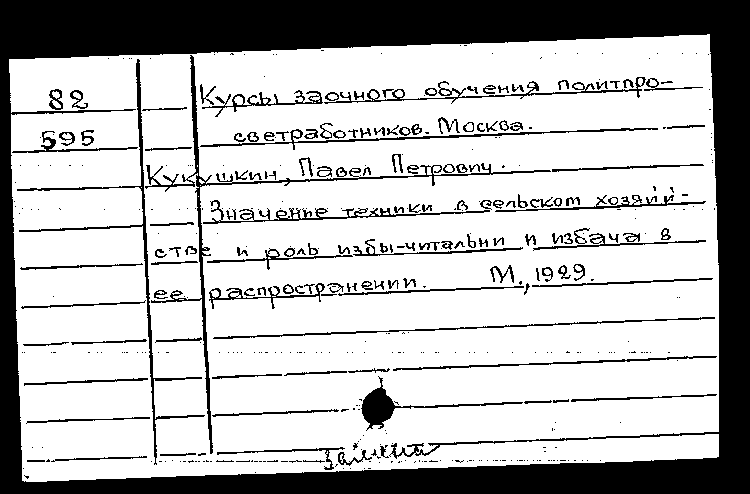 82
Курсы заочного обучения политпро-
595
светработников. Москва.
Кукушкин, Павел Петрович.
Значение техники в сельском хозяй-
стве и роль избы-читальни и избача в
ее распространении. М., 1929.